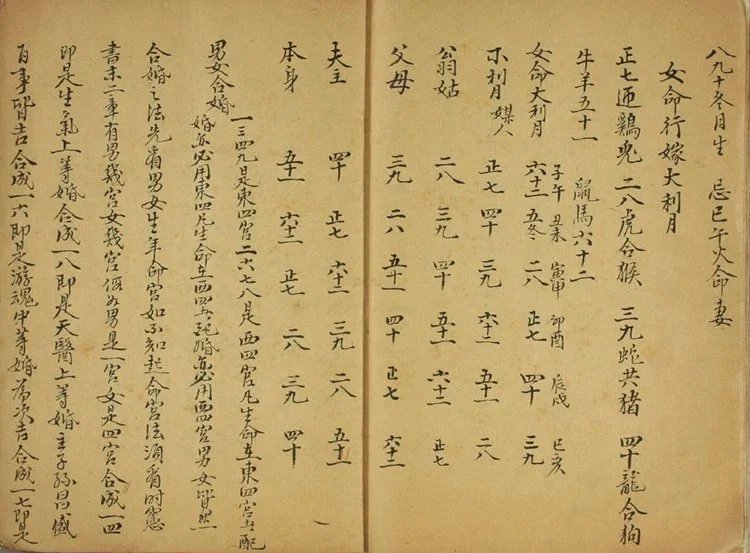 八九十冬月生 忌巳午火命妻
女命行嫁大利月
正七迎鷄兎 二八虎合猴 三九蛇共猪 四十龍合狗
牛羊五十一 鼠馬六十二
子午 丑未 寅申 卯酉 辰戌 巳亥
女命大利月 六十二 五冬 二八 正七 四十 三九
不利月 媒人 正七 四十 三九 六十二 五十一 二八
翁姑 二八 三九 四十 五十一 六十二 正七
父母 三九 二八 五十一 四十 正七 六十二
夫主 四十 正七 六十二 三九 二八 五十一
本身 五十一 六十二 正七 二八 三九 四十
男女合婚 一三四九是東四宮二六七八是西四宮凡生命在東四宮者配
婚亦必用東四凡生命在西四者配婚亦必用西四宮男女皆然
合婚之法先看男女生年命宮如不知起命宮法須看時憲
書末二章有男幾宮女幾宮假如男是一宮女是四宮合成一四
即是生氣上等婚合成一八即是天醫上等婚主子孫昌盛
百事皆吉合成一六即是游魂中等婚為次吉合成一七即是